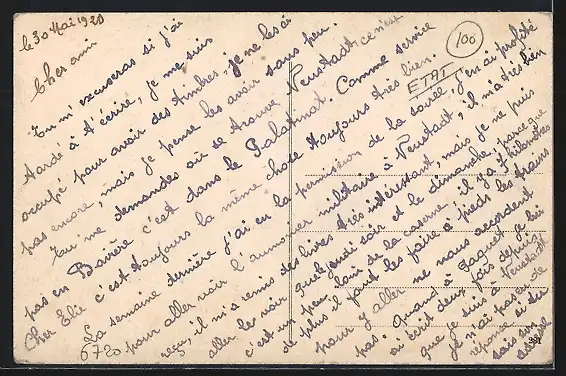 le 30 Mai 1920
Cher ami
Tu m'excuseras si j'ai
tardé à t'écrire, je me suis
occupé pour avoir des timbres, je ne les ai
pas encore, mais je pense les avoir sous peu.
Tu me demandes où se trouve Neustadt ce n'est
pas en Bavière c'est dans le Palatinat. Comme service
c'est toujours la même chose toujours très bien.
Cher Elie
La semaine dernière j'ai eu la permission de la soirée j'en ai profité
pour aller voir l'aumônier militaire à Neustadt, il m'a très bien
reçu, il m'a remis des livres très intéressant, mais je ne puis
aller le voir que le jeudi soir et le dimanche, parce que
c'est un peu loin de la caserne, il y a 7 kilomètres
de plus il faut les faire à pieds les trams
pour y aller ne nous accordent
pas. Quand à Jaquet je lui
ai écrit deux fois depuis
que je suis à Neustadt
je n'ai pas eu de
réponse si tu
sais son
adresse
ETAT
100
6720